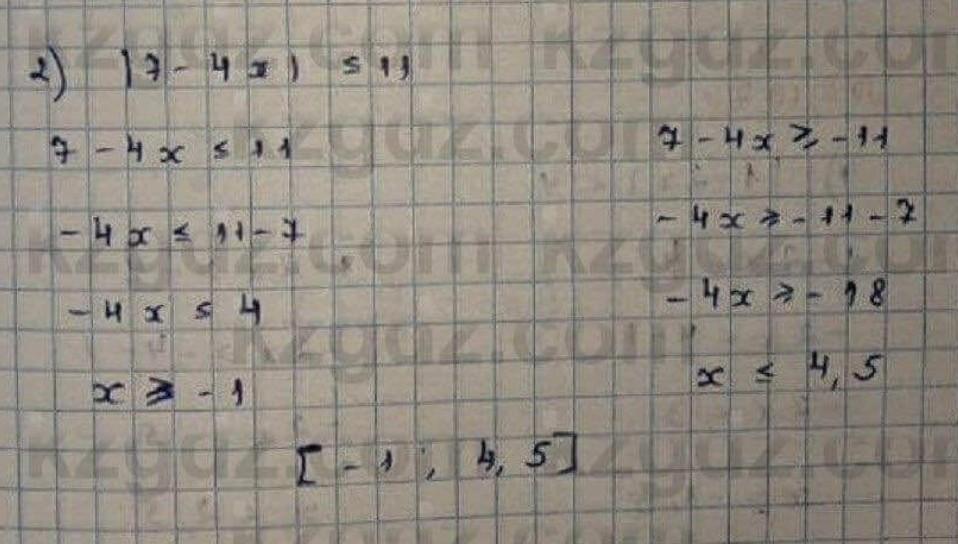 2) |7 - 4x| ≤ 11
7 - 4x ≤ 11
-4x ≤ 11 - 7
-4x ≤ 4
x ≥ -1
7 - 4x ≥ -11
-4x ≥ -11 - 7
-4x ≥ -18
x ≤ 4,5
[-1; 4,5]
kzgdz.com kzgdz.com
kzgdz.com
kzgdz.com kzgdz.com
kzgdz.com
kzgdz.com kzgdz.com